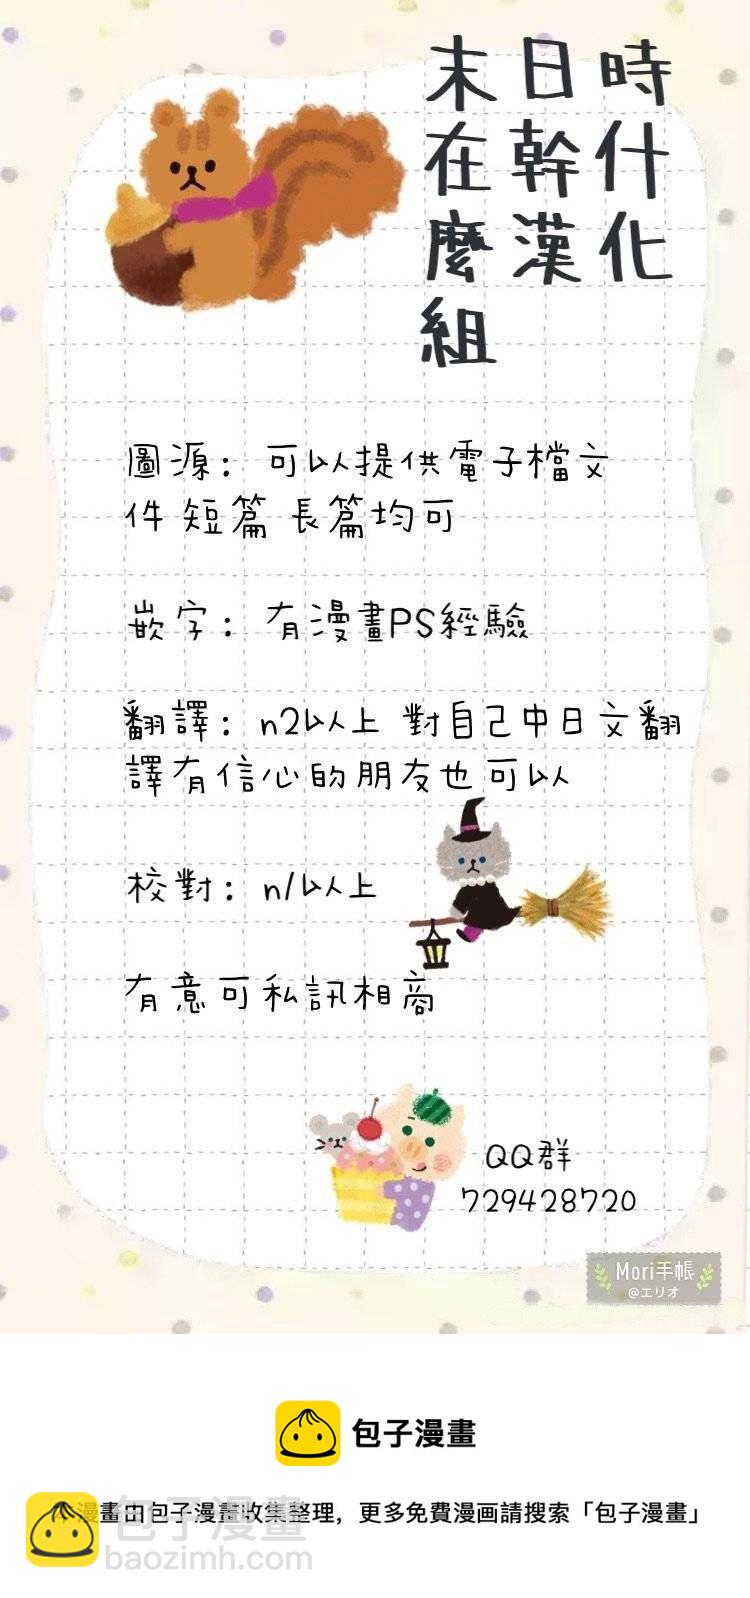 末日時
在幹什
麼漢化
組
圖源：可以提供電子檔文
件 短篇 長篇均可
嵌字：有漫畫PS經驗
翻譯：n2以上 對自己中日文翻
譯有信心的朋友也可以
校對：n1以上
有意可私訊相商
QQ群
729428720
Mori手帳
@エリオ
包子漫畫
本漫畫由包子漫畫收集整理，更多免費漫画請搜索「包子漫畫」
包子漫畫
baozimh.com